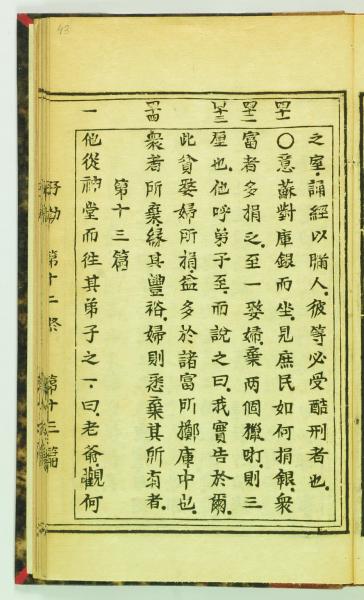 之室,誦經以瞞人,彼等必受酷刑者也.
四十一 〇意蘇對庫銀而坐,見庶民如何捐銀,衆
四十二 富者多捐之,至一婺婦,棄兩個獵盯,則三
四十三 厘也,他呼弟子至,而說之曰,我實告於爾,
此貧婺婦所捐,益多於諸富所擲庫中也,
四十四 衆者所棄緣其豐裕,婦則悉棄其所有者.
第十三篇
一 他從神堂而往其弟子之一,曰,老爺觀何
第十二 第十三篇
43